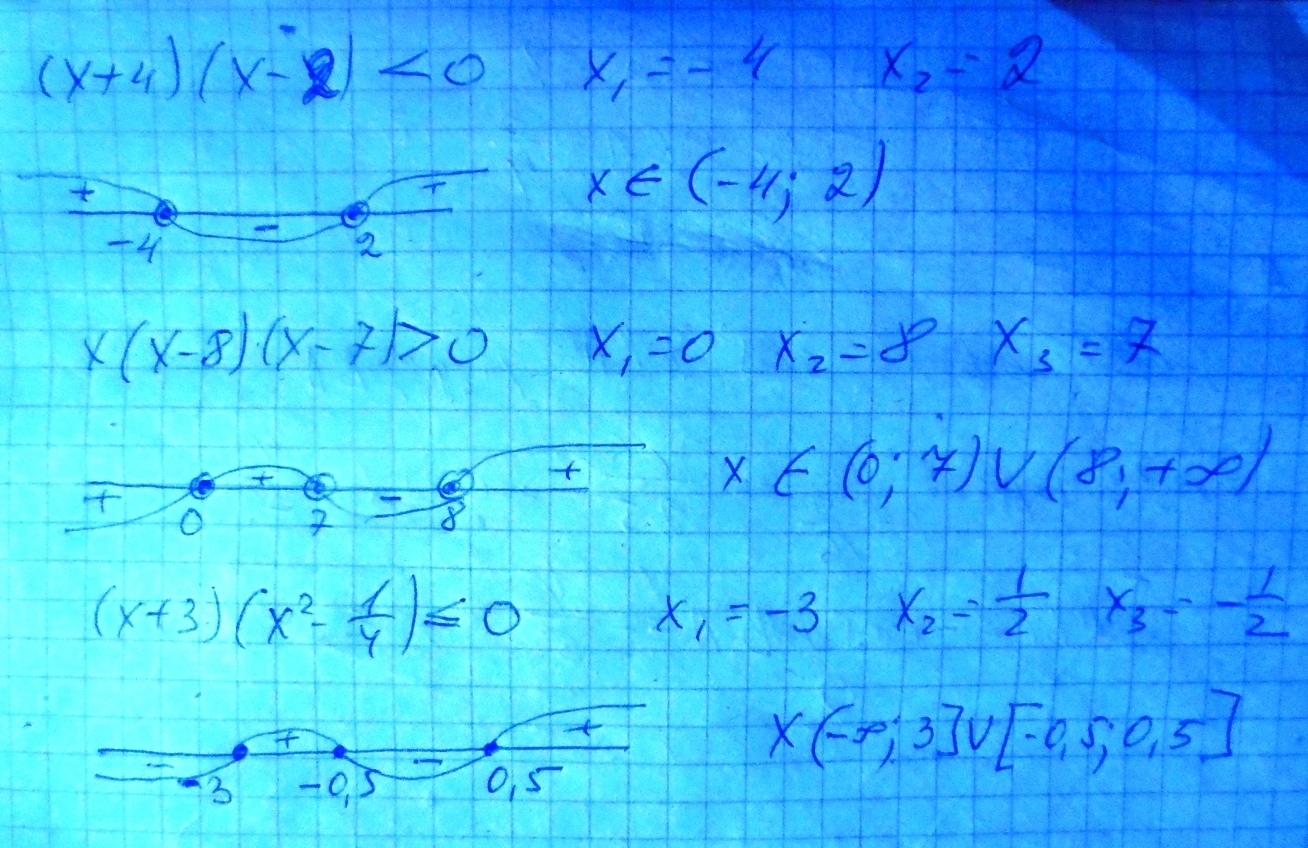 (x+4)(x-2)<0 x₁=-4 x₂=2
+ - +
-4 2
x∈(-4; 2)
x(x-8)·(x-7)>0 x₁=0 x₂=8 x₃=7
+ + - +
0 7 8
x∈(0; 7)∪(8; +∞)
(x+3)(x²-1/4)≤0 x₁=-3 x₂=1/2 x₃=-1/2
- + - +
-3 -0,5 0,5
x(-∞; 3]∪[-0,5; 0,5]